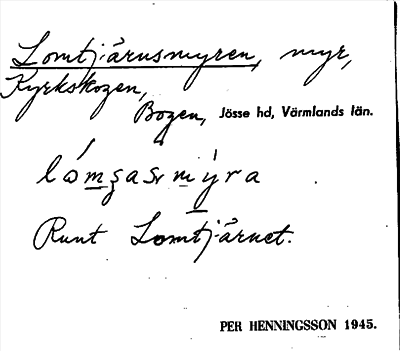 Lomtjärnsmyren, myr,
Kyrkskogen,
Bogen, Jösse hd, Värmlands län.
Runt Lomtjärnet.
PER HENNINGSSON 1945.